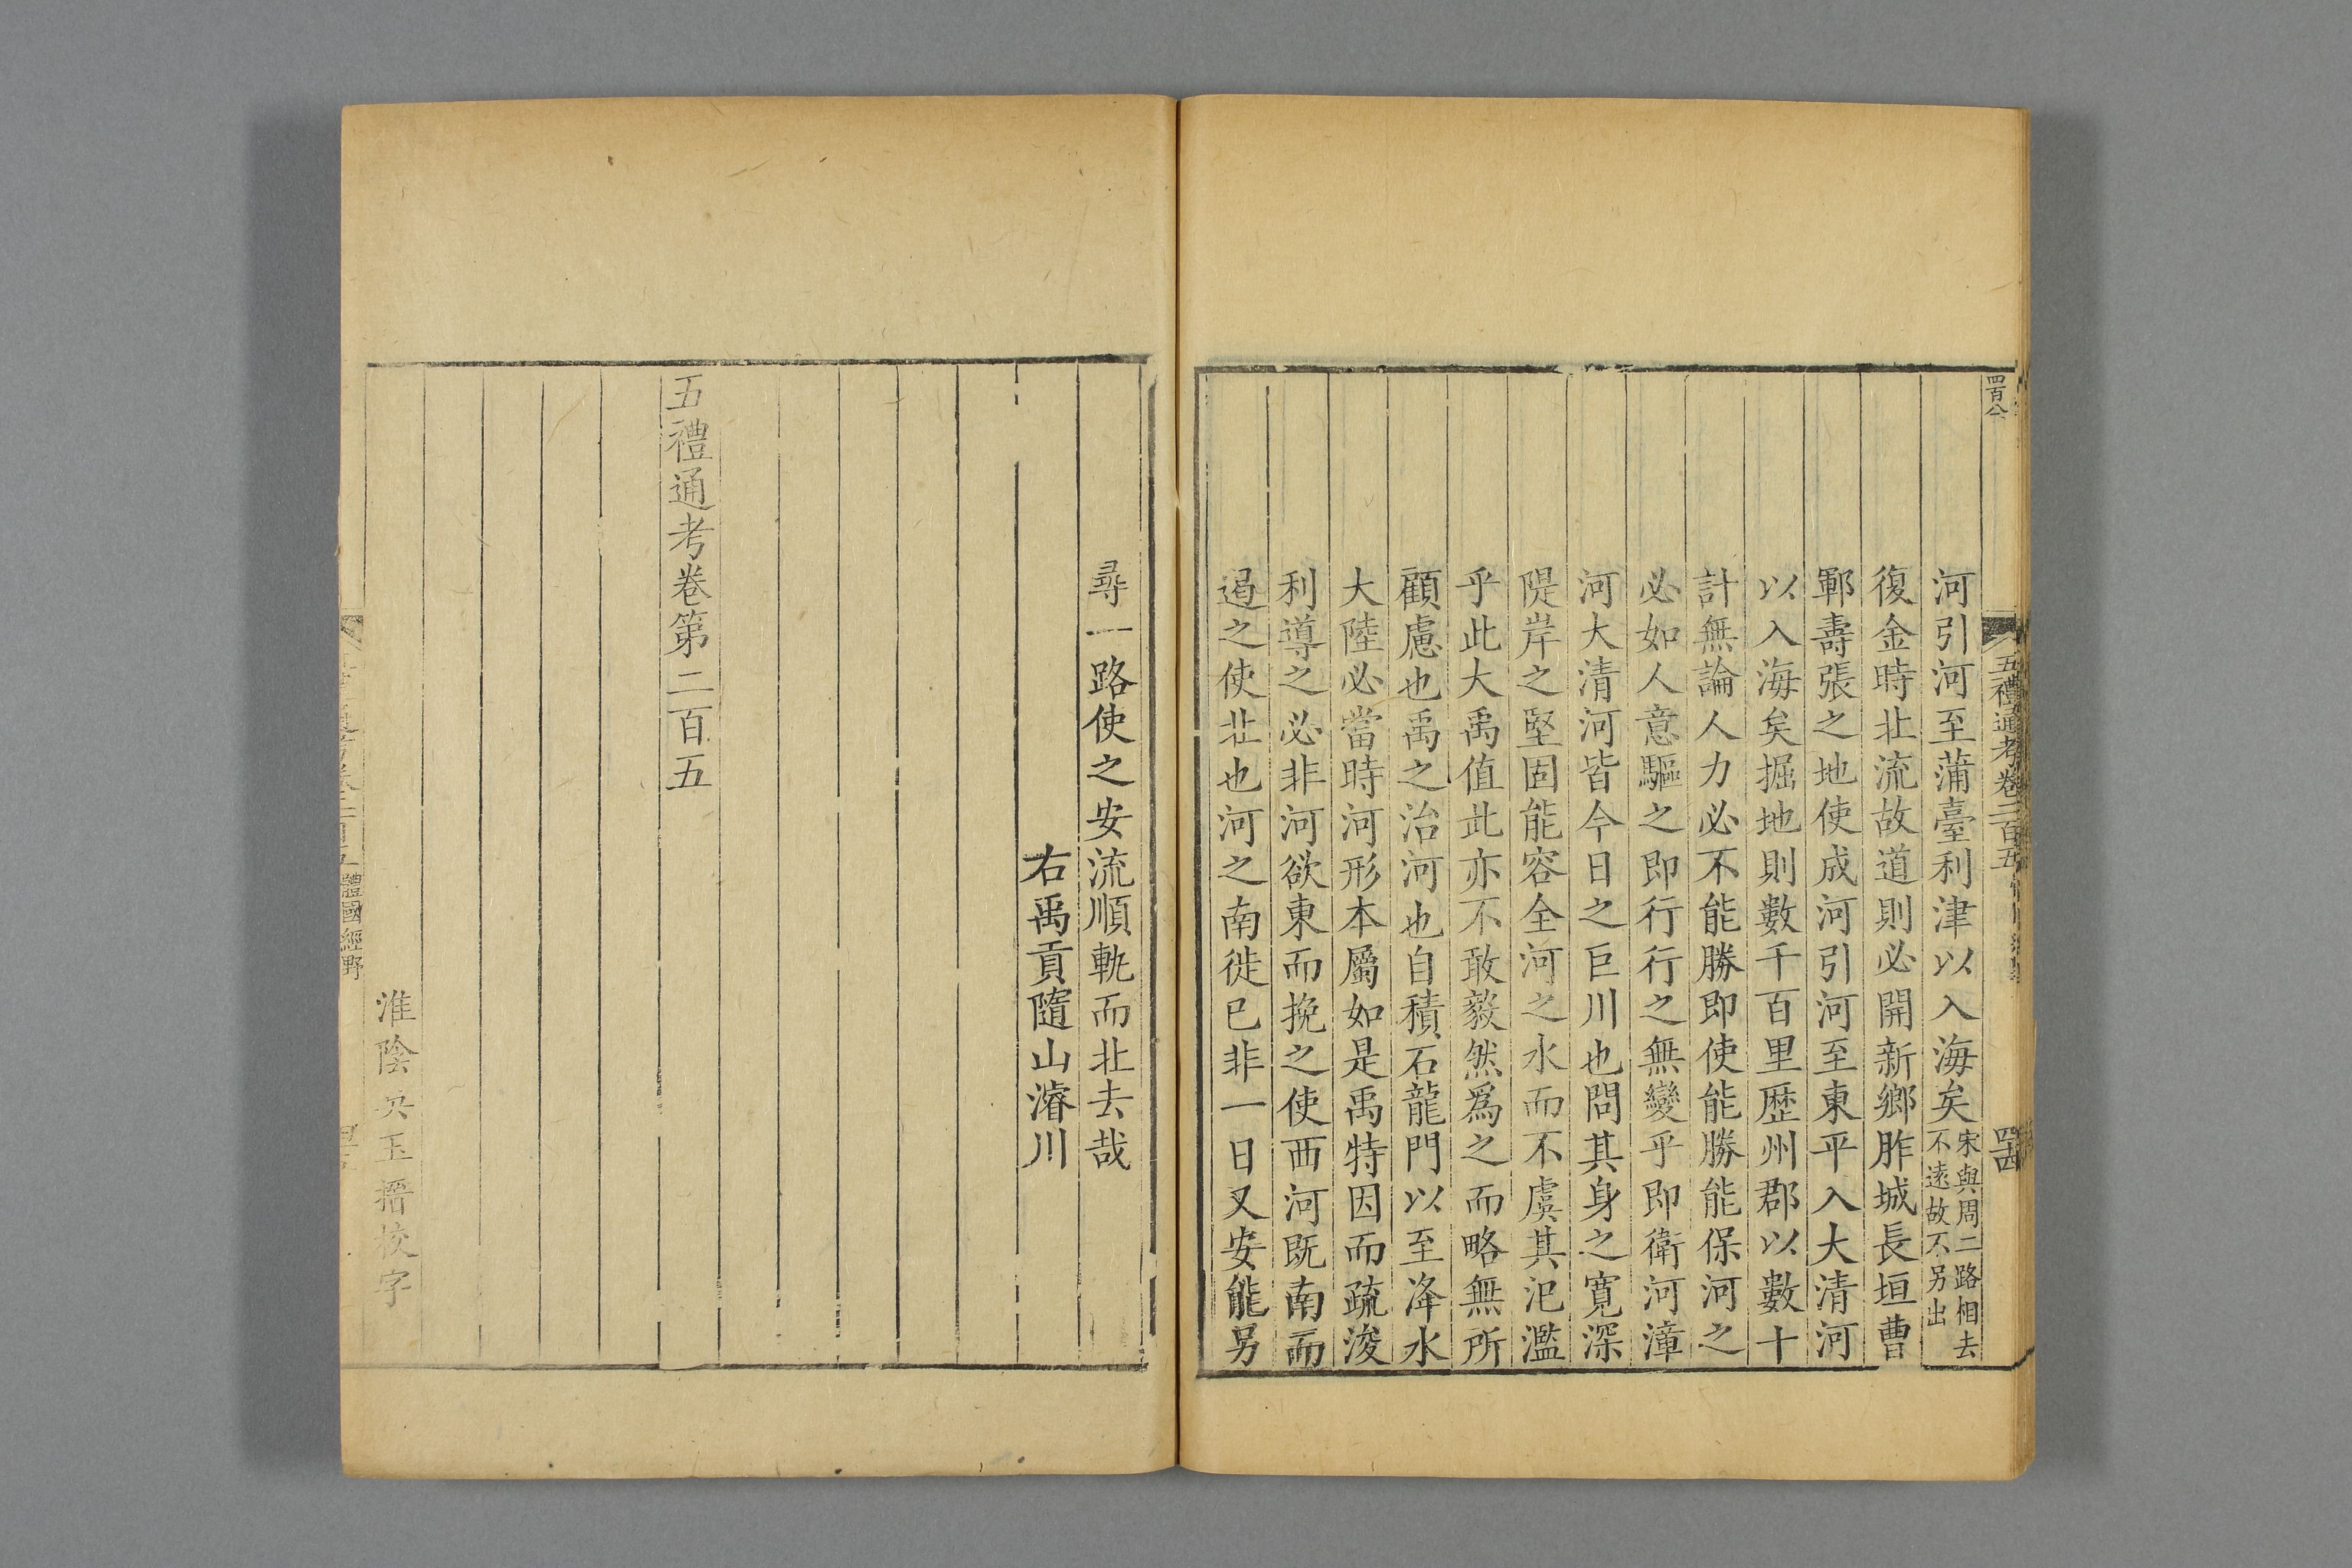 四百八
五禮通考卷二百五
河引河至蒲臺利津以入海矣宋與周二路相去不遠故不另出
復金時北流故道則必開新鄉胙城長垣曹
鄆壽張之地使成河引河至東平入大清河
以入海矣掘地則數千百里歷州郡以數十
計無論人力必不能勝即使能勝能保河之
必如人意驅之即行行之無變乎即衛河漳
河大清河皆今日之巨川也問其身之寬深
隄岸之堅固能容全河之水而不虞其汜濫
乎此大禹值此亦不敢毅然爲之而略無所
顧慮也禹之治河也自積石龍門以至洚水
大陸必當時河形本屬如是禹特因而疏浚
利導之必非河欲東而挽之使西河既南而
遏之使北也河之南徙已非一日又安能另
尋一路使之安流順軌而北去哉
右禹貢隨山濬川
五禮通考卷第二百五
淮陰吳玉搢校字
體國經野